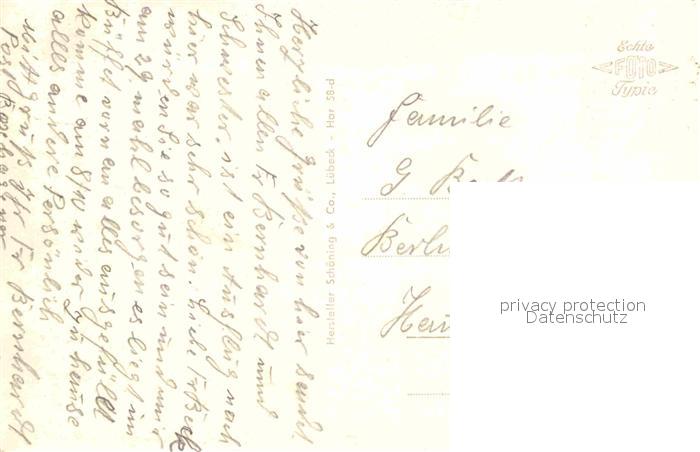 Herzliche Grüße von hier sendet
Ihnen allen Fr Bernhardt und
Schwester. ist ein Ausflug nach
hier war sehr schön. Liebe Fr Beck
würden Sie so gut sein und mir
am 29 mahl besorgen es liegt im
Büffet vorn an alles ausgefüllt
komme am 8/10 wieder zu hause
alles andere Persönlich
Mit gruß Ihr Fr Bernhardt
Post
Hersteller Schöning & Co., Lübeck - Har 58-d
Echte
FOTO
Typie
Familie
G
Berlin
privacy protection
Datenschutz